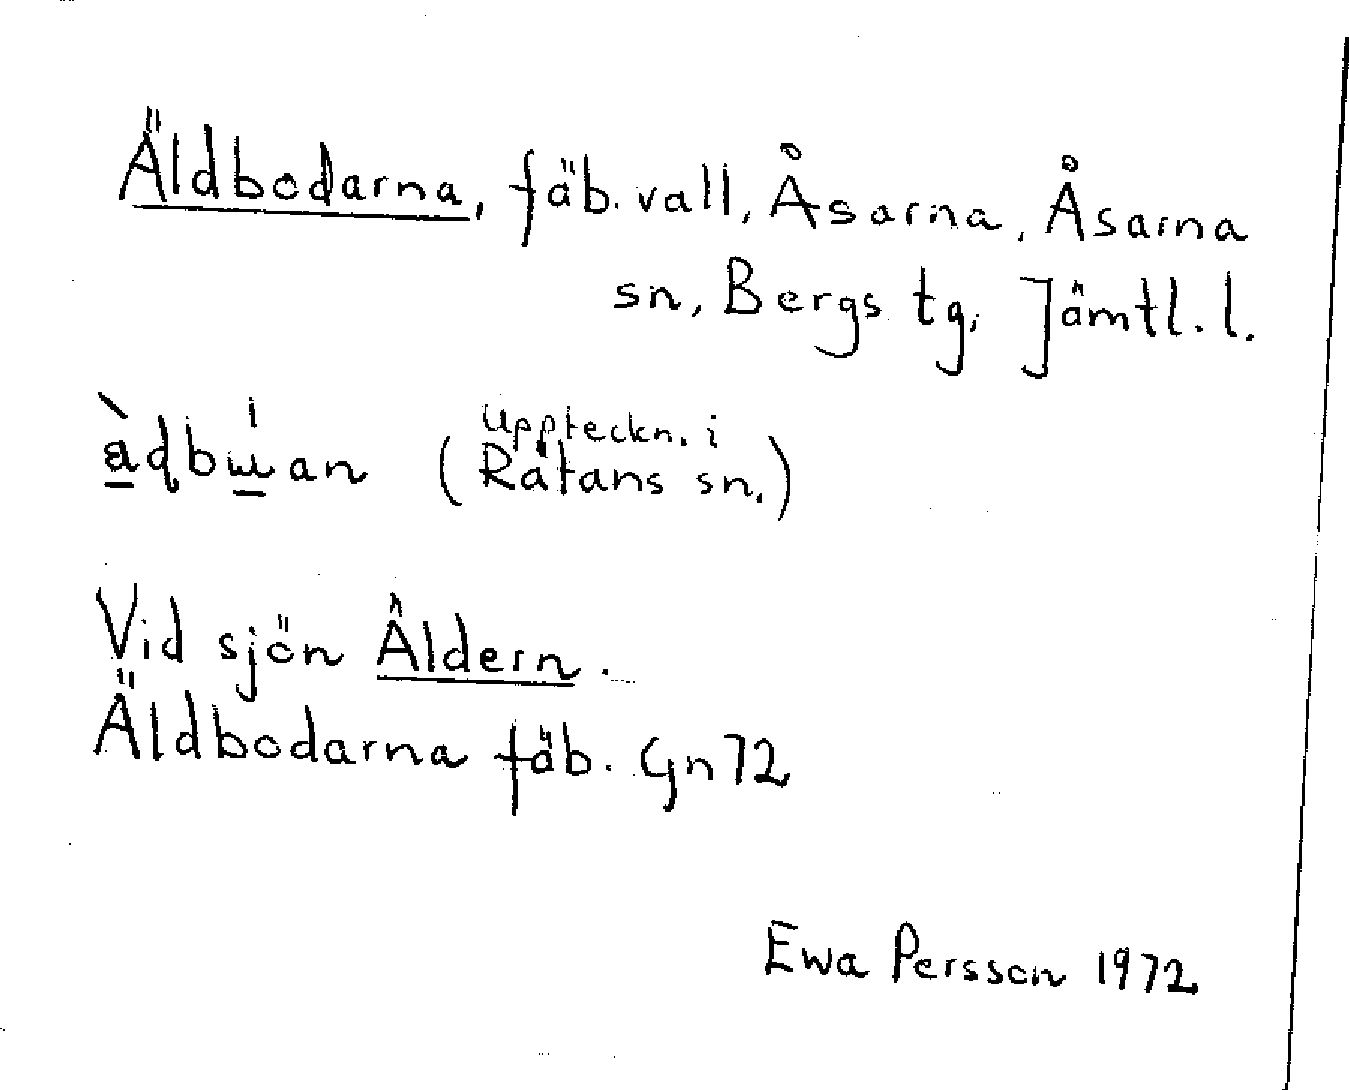 Äldbodarna, fäb.vall, Åsarna, Åsarna
sn, Bergs tg, Jämtl. l.
(Uppteckn. i
Rätans sn.)
Vid sjön Äldern.
Äldbodarna fäb. Gn72
Ewa Persson 1972